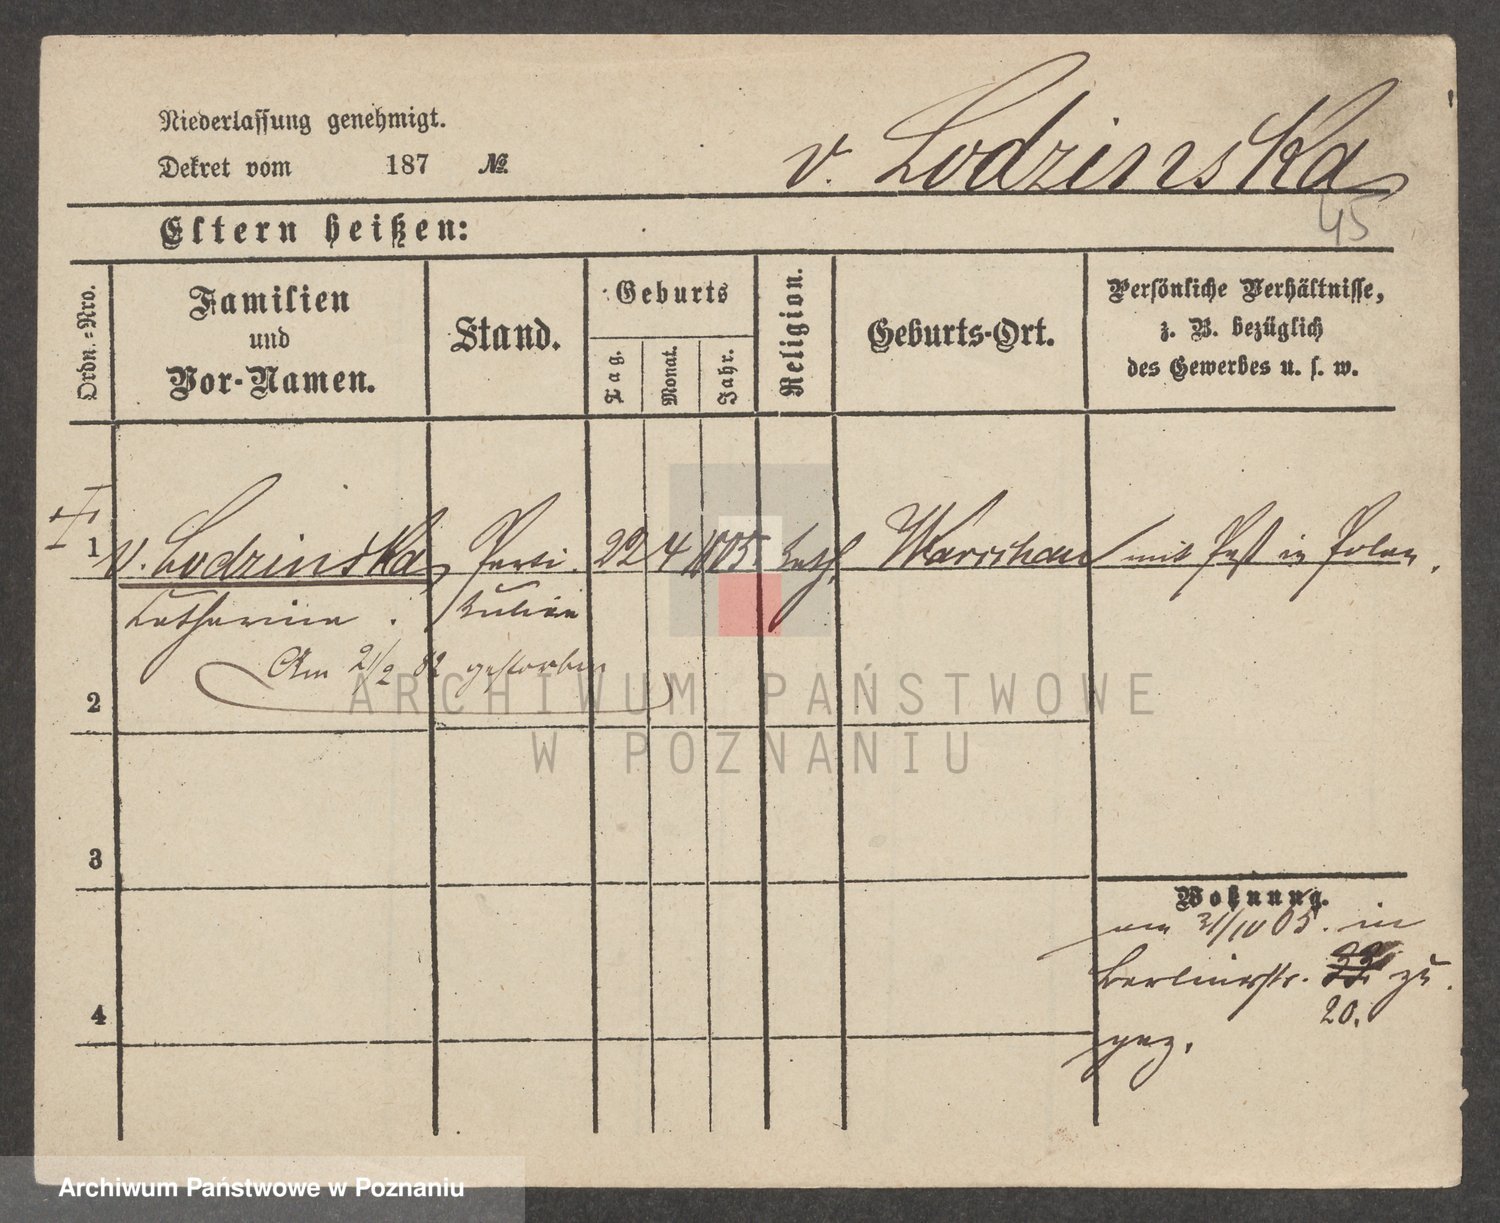 Niederlassung genehmigt.
Dekret vom 187 №
v. Lodzinska
45
Eltern heißen:
Ordn.-Nro.
Familien
und
Vor-Namen.
Stand.
Geburts
Tag.
Monat.
Jahr.
Religion.
Geburts-Ort.
Persönliche Verhältnisse,
z. B. bezüglich
des Gewerbes u. s. w.
1 v. Lodzinska Parti 22 4 1805 kath. Warschau mit Paß in Polen.
Catharina. kuliere
Am 21/2 82 gestorben
2
3
4
Wohnung.
am 31/10 05. in
Berlinerstr. zu
20.
gez.
ARCHIWUM PAŃSTWOWE
W POZNANIU
Archiwum Państwowe w Poznaniu